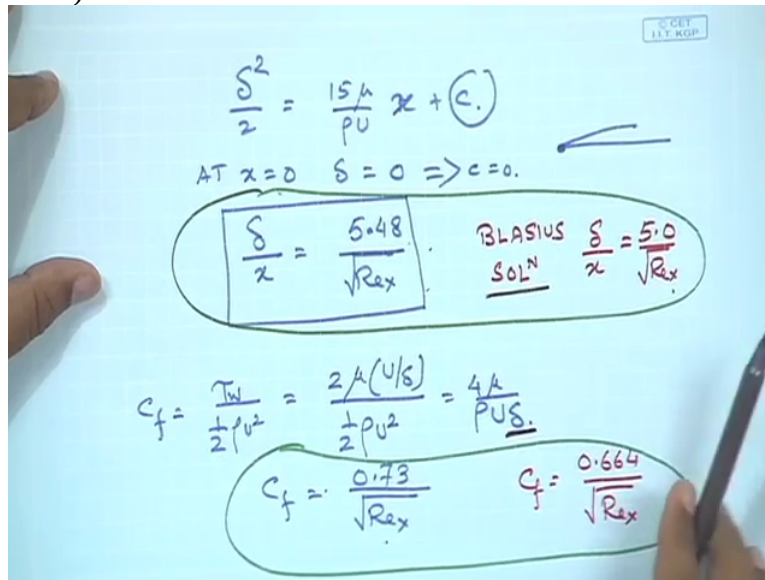 © CET
I.I.T. KGP
δ²/2 = 15μ/ρU x + C.
AT x=0 δ = 0 => c=0.
δ/x = 5.48/√Rex . BLASIUS SOLᴺ δ/x = 5.0/√Rex .
Cf = τw/(½ρU²) = 2μ(U/δ)/(½ρU²) = 4μ/ρUδ.
Cf = 0.73/√Rex Cf = 0.664/√Rex